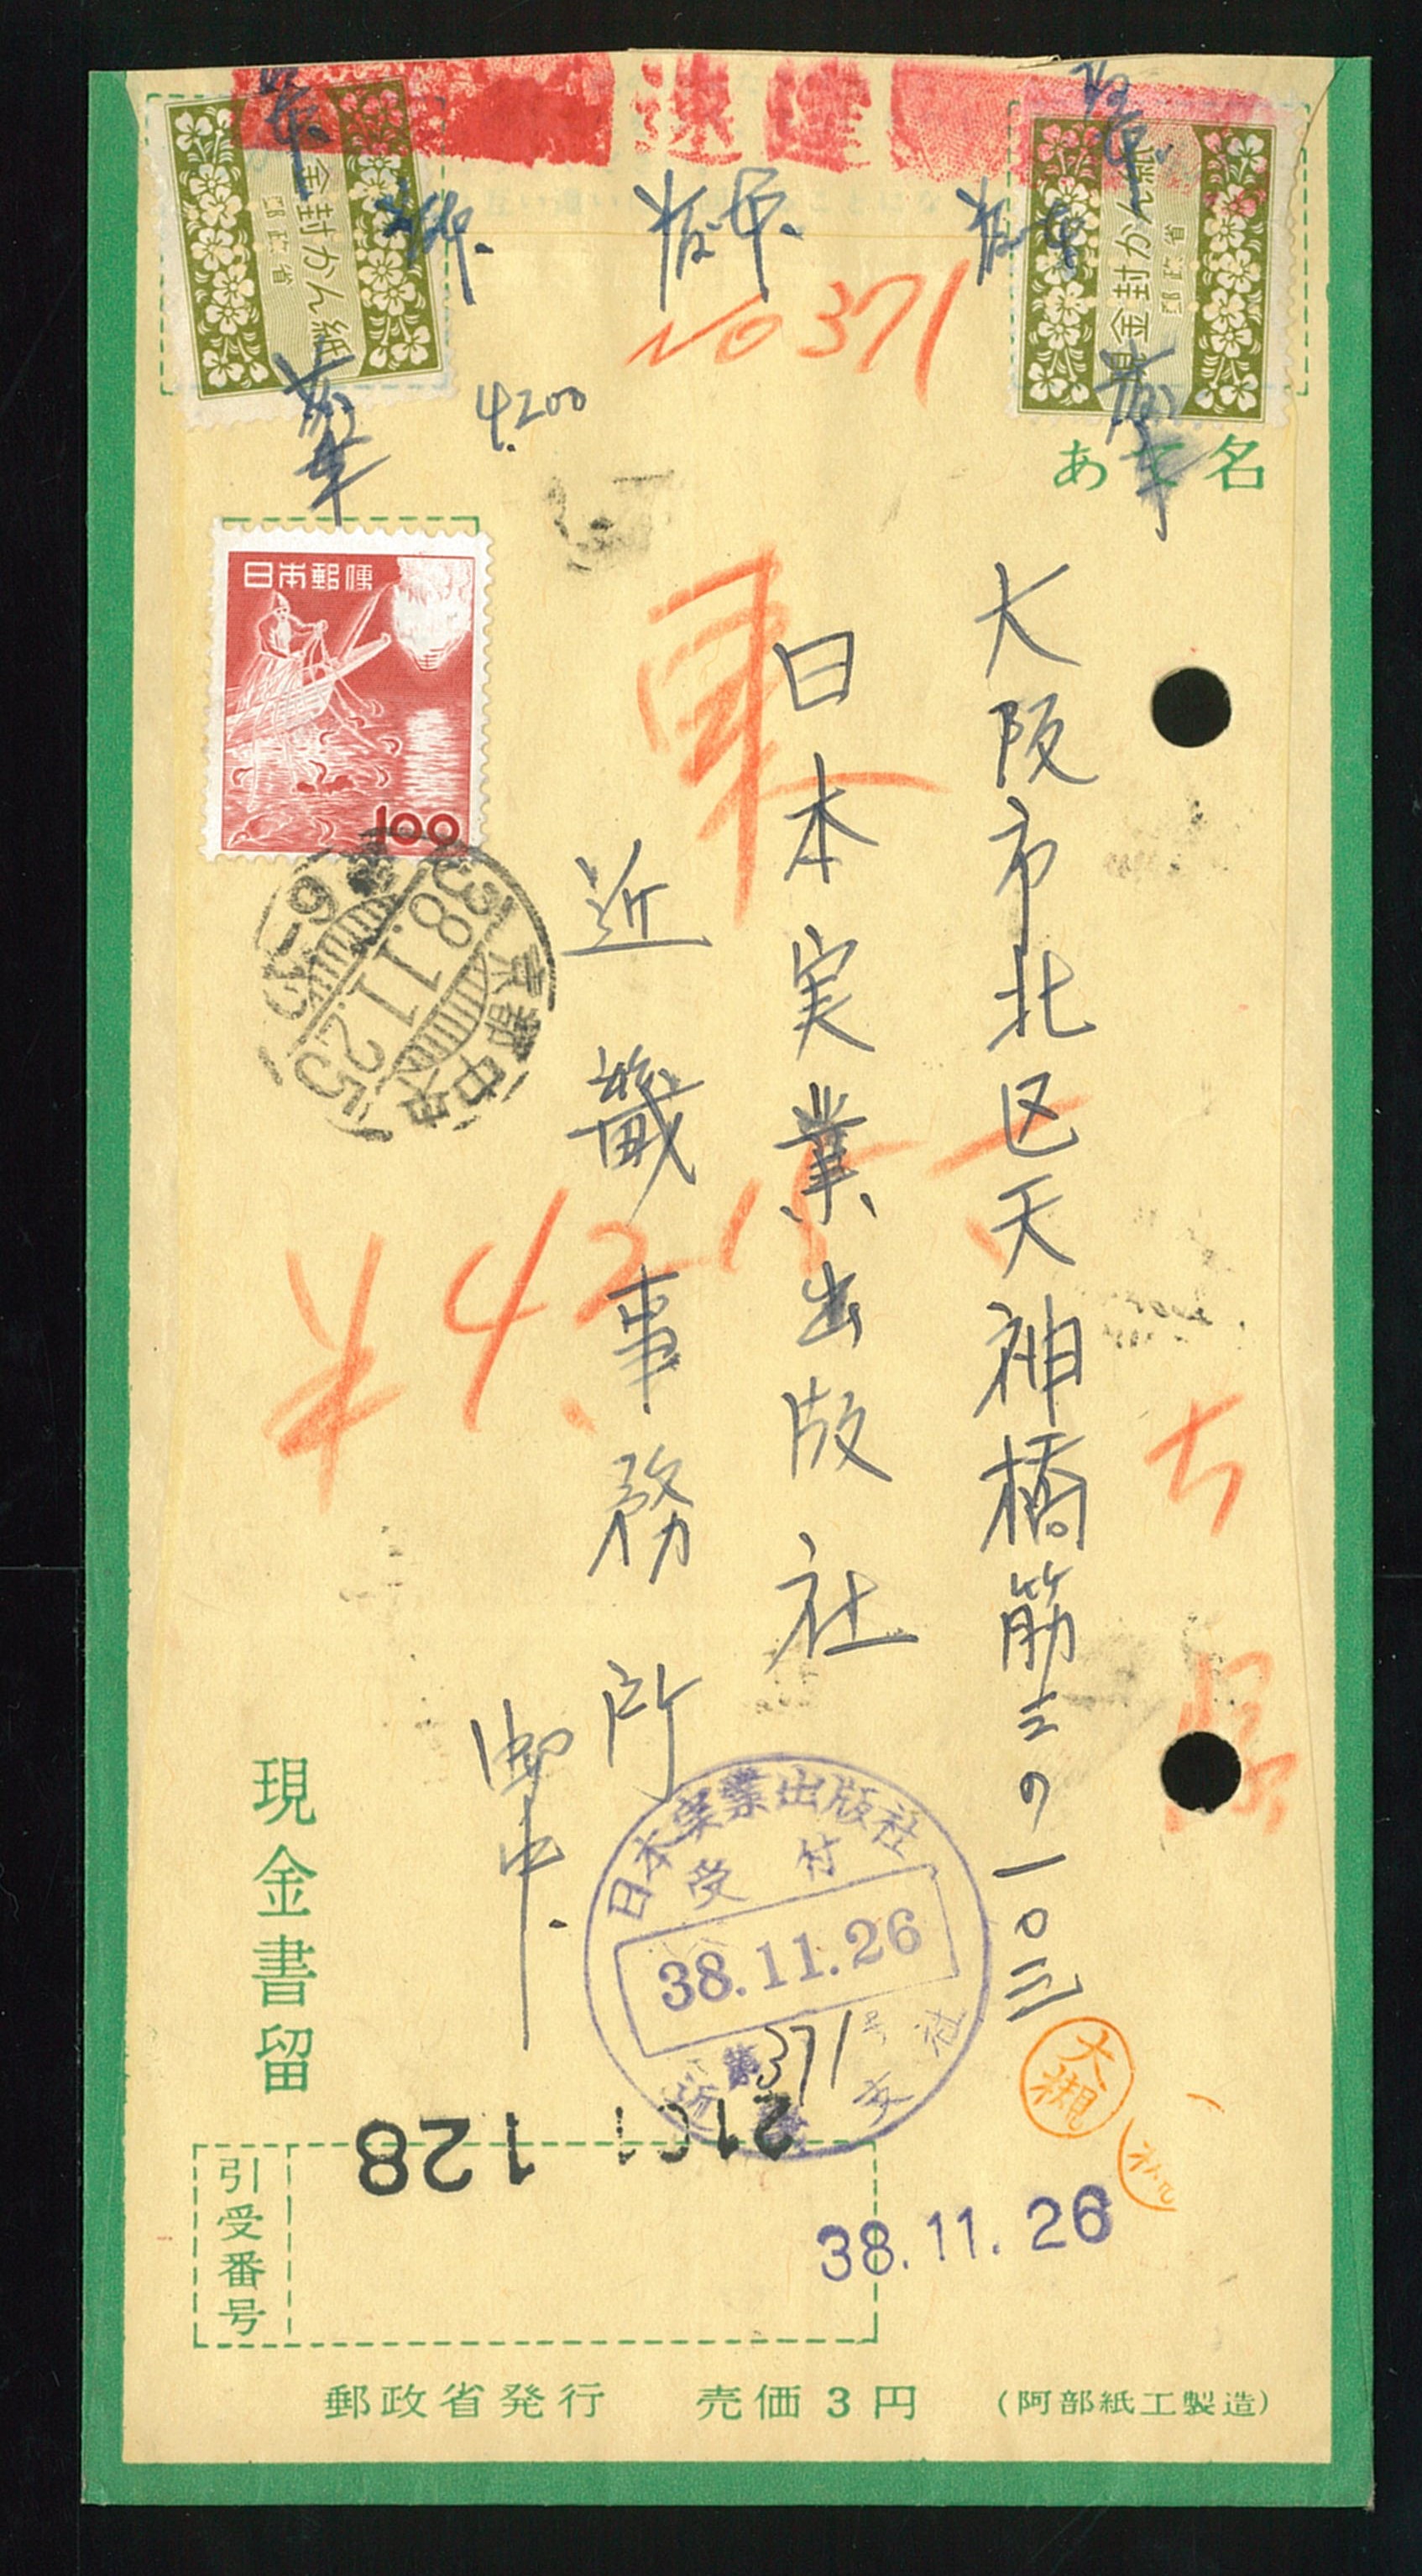 速達
現金封かん紙
郵政省
金封かん紙
郵政省
No 371
4.200
あて名
日本郵便
100
大阪市北区天神橋筋三の一〇三
日本実業出版社
近畿事務所
御中
東
¥4,2
京都中央
38.11.25
6-12
日本実業出版社
受付
38.11.26
第371号
支社
大槻
現金書留
128
38.11.26
引受番号
郵政省発行 売価3円 (阿部紙工製造)